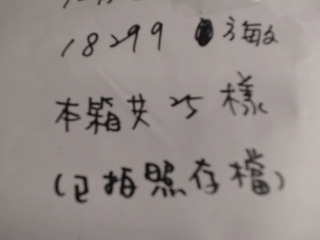 18299 方敏
本箱共25樣
(已拍照存檔)